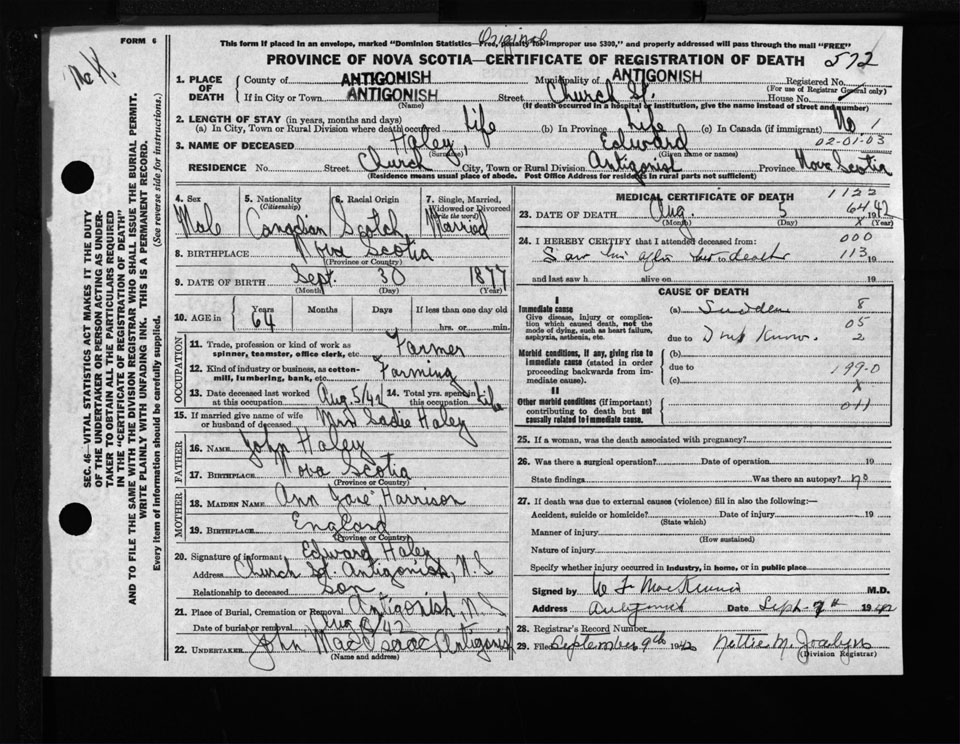 FORM 6
Original
This form if placed in an envelope, marked "Dominion Statistics—Free, penalty for improper use $300," and properly addressed will pass through the mail "FREE"
PROVINCE OF NOVA SCOTIA—CERTIFICATE OF REGISTRATION OF DEATH 572
1. PLACE OF DEATH
County of ANTIGONISH Municipality of ANTIGONISH Registered No.
(For use of Registrar General only)
If in City or Town ANTIGONISH Street Church St. House No.
(Name) (If death occurred in a hospital or institution, give the name instead of street and number)
2. LENGTH OF STAY (in years, months and days)
(a) In City, Town or Rural Division where death occurred Life (b) In Province Life (c) In Canada (if immigrant) No. 1
02-01-03
3. NAME OF DECEASED Haley, Edward
(Surname) (Given name or names)
RESIDENCE No. Street Church City, Town or Rural Division Antigonish Province Nova Scotia
(Residence means usual place of abode. Post Office Address for residents in rural parts not sufficient)
4. Sex Male
5. Nationality (Citizenship) Canadian
6. Racial Origin Scotch
7. Single, Married, Widowed or Divorced (Write the word) Married
8. BIRTHPLACE Nova Scotia
(Province or Country)
9. DATE OF BIRTH Sept. 30 1877
(Month) (Day) (Year)
10. AGE in Years 64 Months Days If less than one day old
hrs. or min.
OCCUPATION
11. Trade, profession or kind of work as spinner, teamster, office clerk, etc. Farmer
12. Kind of industry or business, as cotton-mill, lumbering, bank, etc. Farming
13. Date deceased last worked at this occupation Aug. 5/42
14. Total yrs. spent in this occupation Life
15. If married give name of wife or husband of deceased Mrs Sadie Haley
FATHER
16. NAME John Haley
17. BIRTHPLACE Nova Scotia
(Province or Country)
MOTHER
18. MAIDEN NAME Ann Jane Harrison
19. BIRTHPLACE England
(Province or Country)
20. Signature of informant Edward Haley
Address Church St. Antigonish, N.S
Relationship to deceased Son
21. Place of Burial, Cremation or Removal Antigonish N.S
Date of burial or removal Aug 8/42
22. UNDERTAKER John MacIsaac Antigonish
(Name and address)
MEDICAL CERTIFICATE OF DEATH 1122
23. DATE OF DEATH Aug. 5 1942
64
(Month) (Day) (Year)
24. I HEREBY CERTIFY that I attended deceased from: 000
Saw him after his death 113 19
and last saw h alive on 19
CAUSE OF DEATH
I
Immediate cause (a) Sudden 8
Give disease, injury or complication which caused death, not the mode of dying, such as heart failure, asphyxia, asthenia, etc. 05
due to Don't Know. 2
Morbid conditions, if any, giving rise to immediate cause (stated in order proceeding backwards from immediate cause). (b)
due to 199.0
(c) x
II
Other morbid conditions (if important) contributing to death but not causally related to immediate cause. 011
25. If a woman, was the death associated with pregnancy?
26. Was there a surgical operation? Date of operation 19
State findings Was there an autopsy? no
27. If death was due to external causes (violence) fill in also the following:—
Accident, suicide or homicide? Date of injury 19
(State which)
Manner of injury
(How sustained)
Nature of injury
Specify whether injury occurred in industry, in home, or in public place
Signed by W F MacKinnon M.D.
Address Antigonish Date Sept. 7th 1942
28. Registrar's Record Number
29. Filed September 9th 1942 Nettie M. Joalyn
(Division Registrar)
SEC. 46—VITAL STATISTICS ACT MAKES IT THE DUTY
OF THE UNDERTAKER OR PERSON ACTING AS UNDERTAKER TO OBTAIN ALL THE PARTICULARS REQUIRED
IN THE "CERTIFICATE OF REGISTRATION OF DEATH"
AND TO FILE THE SAME WITH THE DIVISION REGISTRAR WHO SHALL ISSUE THE BURIAL PERMIT.
WRITE PLAINLY WITH UNFADING INK. THIS IS A PERMANENT RECORD.
Every item of information should be carefully supplied. (See reverse side for instructions.)